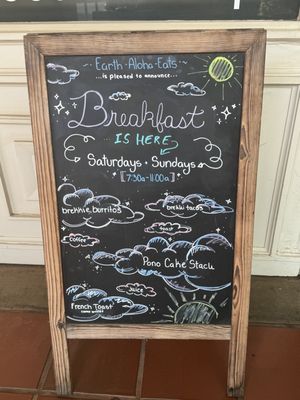 Earth Aloha Eats
...is pleased to announce...
Breakfast
IS HERE
Saturdays + Sundays
[7:30a-11:00a]
brekkie burritos
brekki tacos
coffee
toast
Pono Cake Stack
juice
French Toast